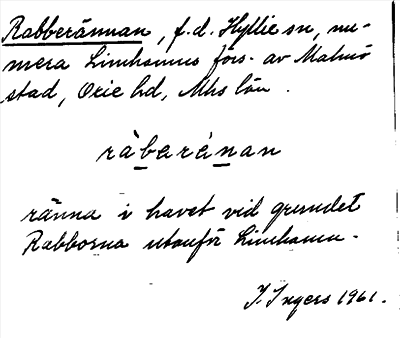 Rabberännan, f.d. Hyllie sn, nu-
mera Limhamns förs. av Malmö
stad, Oxie hd, Mhs län.
ràberánan
ränna i havet vid grundet
Rabborna utanför Limhamn.
I. Ingers 1961.